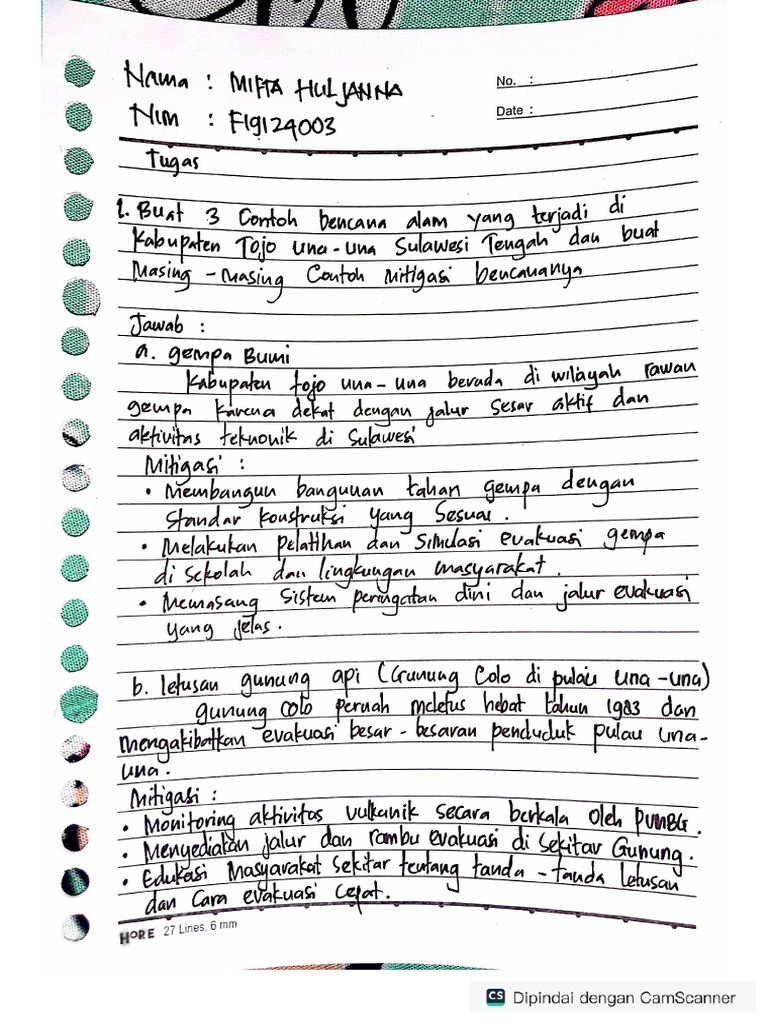 Nama : MIFTA HULJANNA
No. :
Nim : F19124003
Date :
Tugas
1. Buat 3 Contoh bencana alam yang terjadi di
Kabupaten Tojo una-una Sulawesi Tengah dan buat
Masing-masing Contoh Mitigasi bencananya
Jawab :
a. gempa Bumi
Kabupaten tojo una-una berada di wilayah rawan
gempa karena dekat dengan jalur sesar aktif dan
aktivitas teknonik di Sulawesi
Mitigasi :
• Membangun bangunan tahan gempa dengan
Standar konstruksi yang Sesuai.
• Melakukan pelatihan dan Simulasi evakuasi gempa
di sekolah dan lingkungan masyarakat.
• Memasang Sistem peringatan dini dan jalur evakuasi
yang jelas.
b. letusan gunung api (Gunung Colo di pulau una-una)
gunung colo pernah meletus hebat tahun 1983 dan
mengakibatkan evakuasi besar-besaran penduduk pulau una-
una.
Mitigasi :
• Monitoring aktivitas vulkanik secara berkala oleh PVMBG.
• Menyediakan jalur dan rambu evakuasi di sekitar Gunung.
• Edukasi Masyarakat sekitar tentang tanda-tanda letusan
dan Cara evakuasi cepat.
HORE 27 Lines, 6 mm
CS Dipindai dengan CamScanner